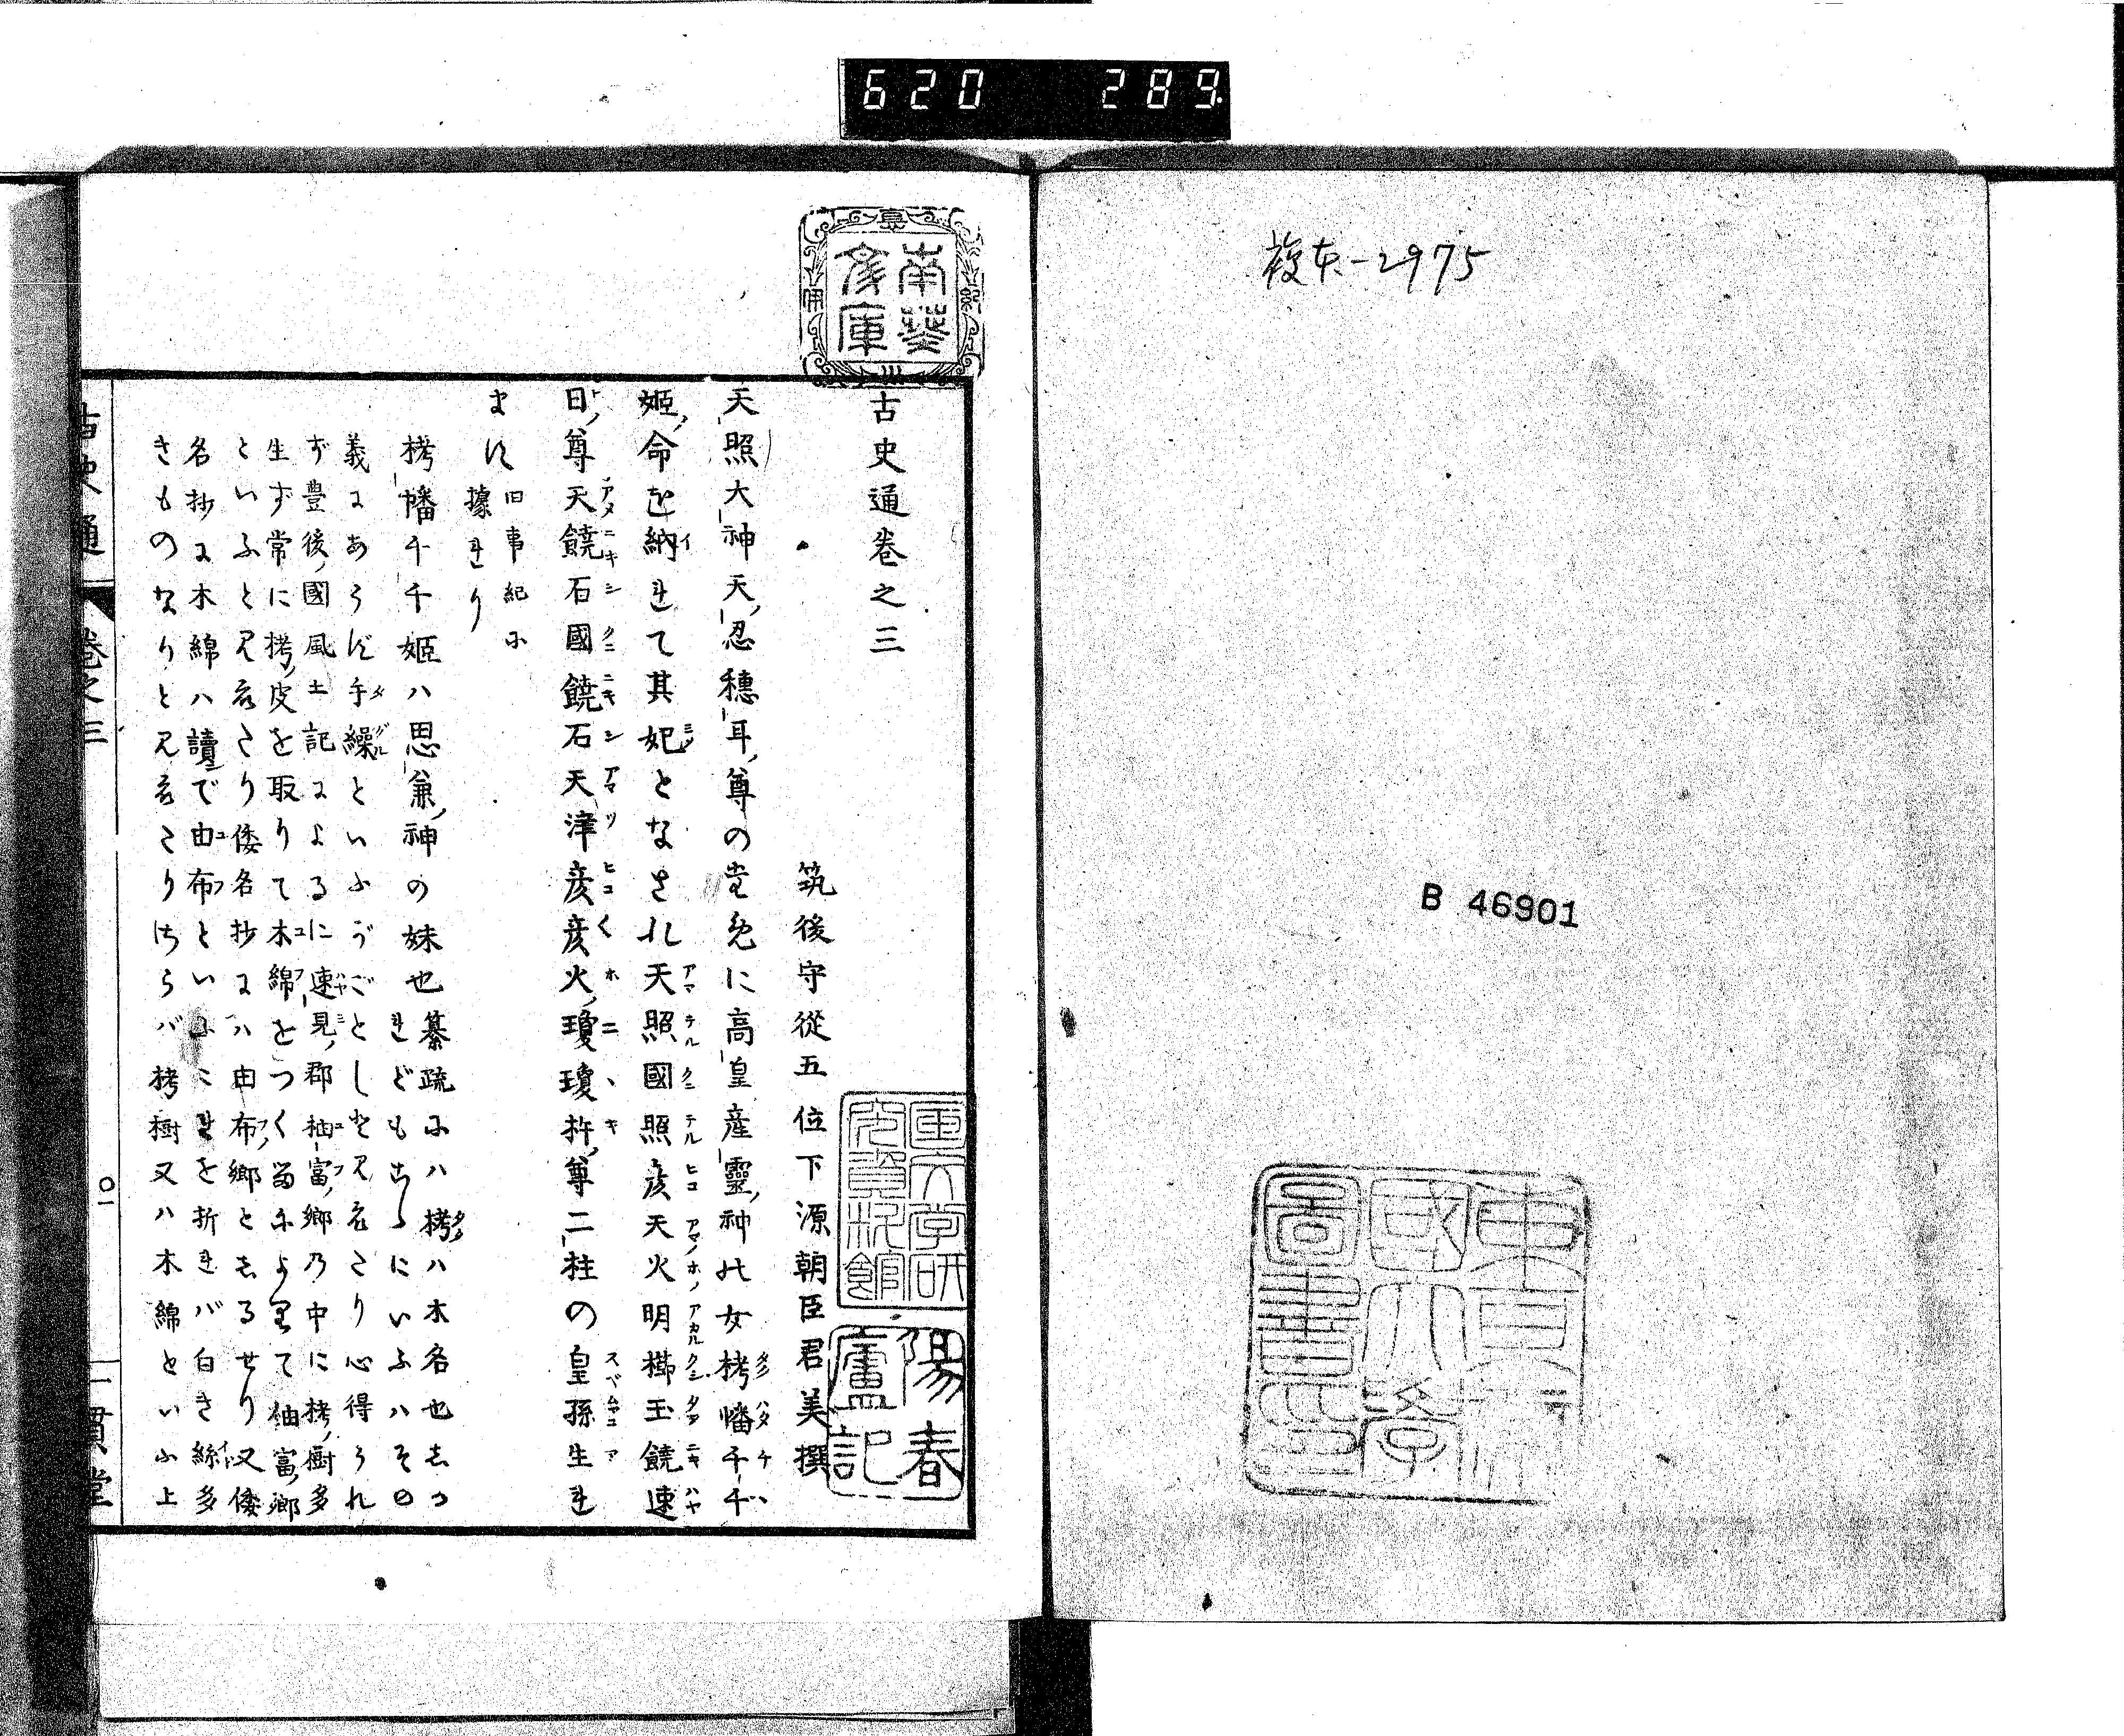 620 289
複本-2975
B 46901
東京
國大學
圖書印
南葵
文庫
陽春
廬記
古史通卷之三
筑後守從五位下源朝臣君美撰
天照大神天忍穗耳尊の爲に高皇産靈神の女栲幡千千
姬命を納れて其妃となされ天照國照彦天火明櫛玉饒速
日尊天饒石國饒石天津彦彦火瓊瓊杵尊二柱の皇孫生れ
ます
旧事紀に
據れり
栲幡千千姬ハ思兼神の妹也
纂疏にハ栲ハ木名也しつ
れどもこゝにいふハその
義にあらず手繰といふがごとしと見えたり心得られ
ず豊後國風土記によるに速見郡柚富鄉乃中に栲樹多
生ず常に栲皮を取りて木綿をつくるによりて柚富鄉
といふと見えたり倭名抄にハ由布鄉としるせり又倭
名抄に木綿ハ讀で由布といふこれを折れバ白き絲多
きものなりと見えたりさらバ栲樹又ハ木綿といふ上
古史通
卷之三
一貫堂